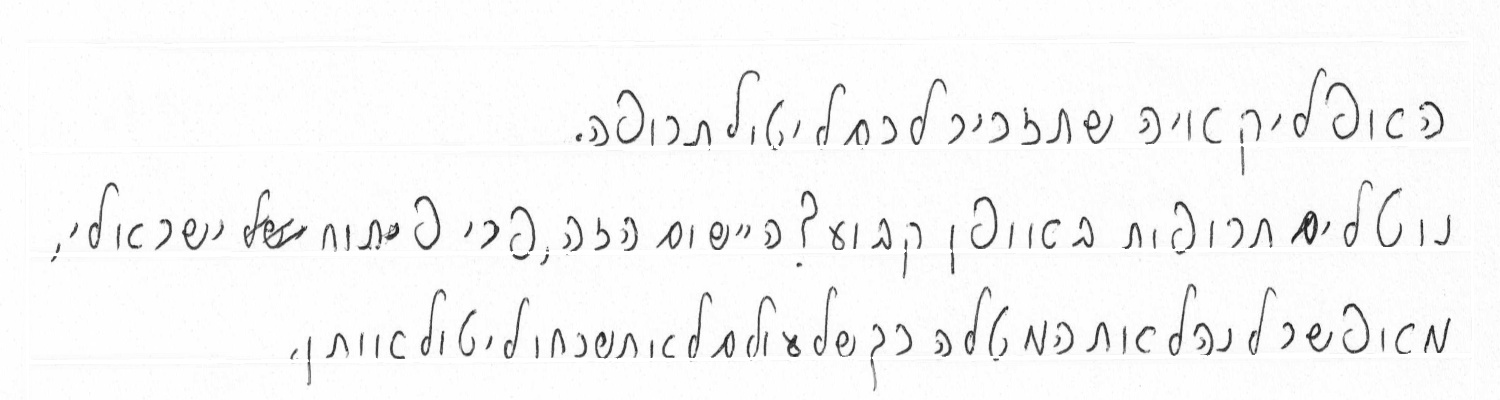 האופליקאויה שתזכיר לכם ליטול תרופה.
נוטלים תרופות באווופן קבוע? היישום הזה, פרי פיתוח ישראלי,
מאופשר לנהל אות המטלה כך שלעולם לא ותשכחו ליטול אוותן.